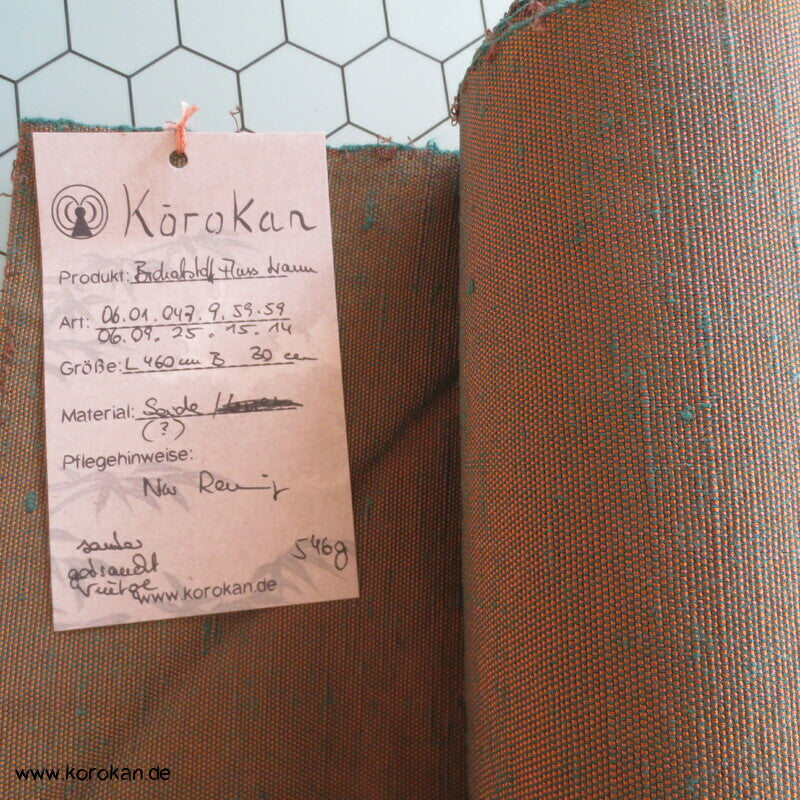 Kōrokan
Produkt:
Art: 06.01.047.9.59.59
06.09.25.15.14
Größe: L 460 cm B 30 cm
Material: Seide /
(?)
Pflegehinweise:
546g
sauber
gebraucht
www.korokan.de
www.korokan.de